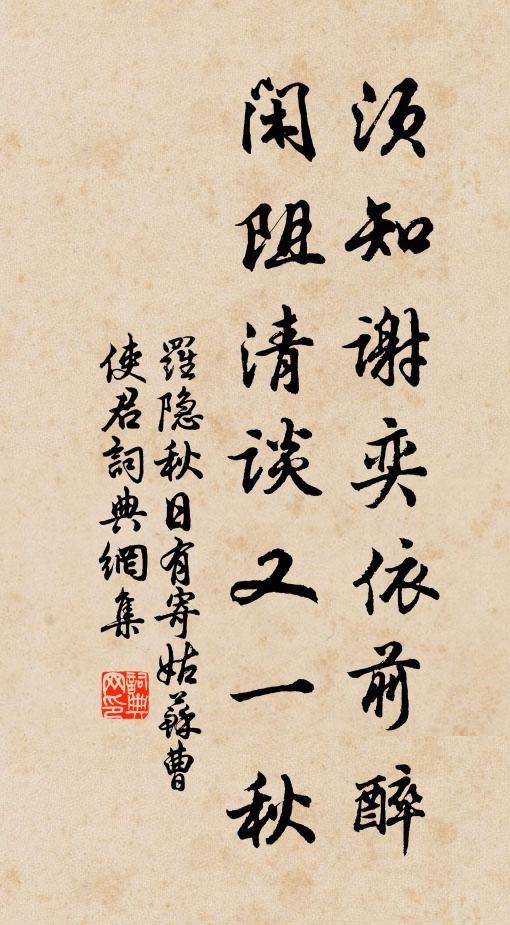 须知谢奕依前醉
闲阻清谈又一秋
羅隐秋日有寄姑蘇曹
使君詞典網集
詞典
网印